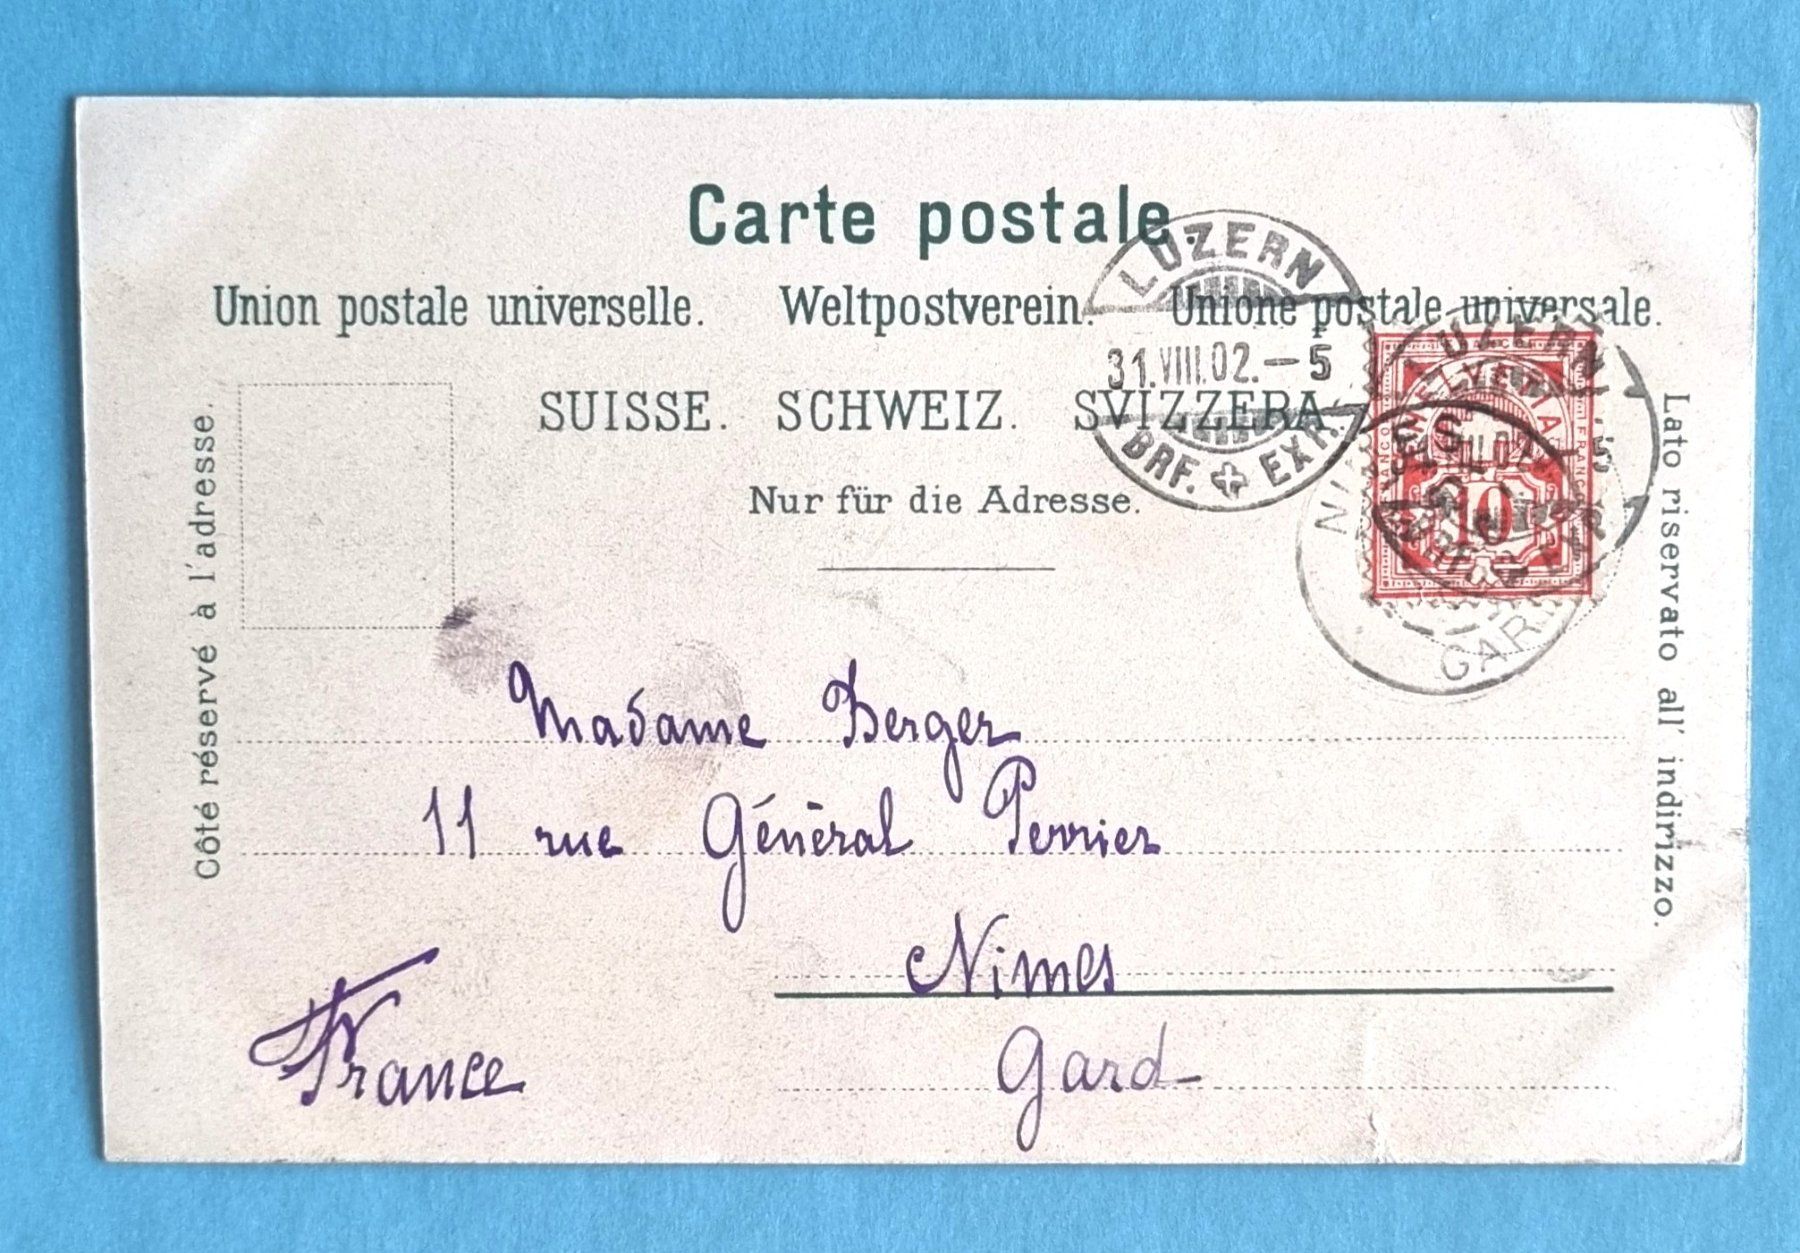 Carte postale.
Union postale universelle. Weltpostverein. Unione postale universale.
SUISSE. SCHWEIZ. SVIZZERA.
Nur für die Adresse.
Côté réservé à l'adresse.
Lato riservato all' indirizzo.
LUZERN
31.VIII.02.-5
BRF. EXP.
LUZERN
HELVETIA
FRANCO
10
GARD
Madame Berger
11 rue Général Perrier
Nimes
Gard
France